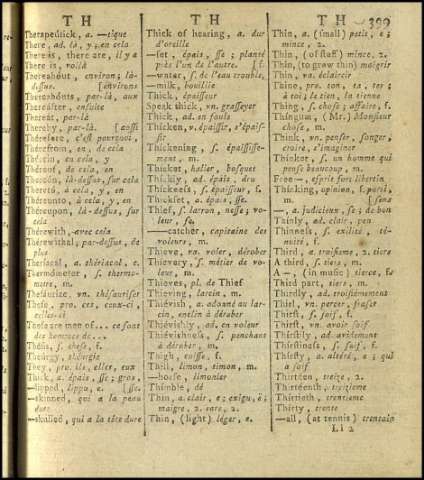 T H
Therapeutick, a. —tique
There, ad. là, y, en cela
There is, there are, il y a
There is voilà
Thereabout, environ; là-
dessus. [environ
Thereabouts, par-là, aux
Thereafter, ensuite
Thereat, par-là
Thereby, par-là [aussi
Therefore, c'est pourquoi,
Therefrom, en, de cela
Therein, en cela, y
Thereof, de cela, en
Thereon, là-dessus, sur cela
Thereto, à cela, y, en
Thereunto, à cela, y, en
Thereupon, là-dessus, sur
cela
Therewith, avec cela
Therewithal, par-dessus, de
plus
Theriacal, a. thériacal, e.
Thermometer, s. thermo-
metre, m.
Thesaurize, vn. thésauriser
These, pro. ces, ceux-ci
celles-ci
These are men of... ce sont
des hommes de...
Thesis, s. these, f.
Theurgy, théurgie
They, pro. ils, elles, eux
Thick, a. épais, sse; gros,
—lipped, lippu, e. [sse.
—skinned, qui a la peau
dure
—skulled, qui a la tête dure
T H
Thick of hearing, a. dur
d'oreille
—set, épais, sse; planté
près l'un de l'autre. [f.
—water, s. de l'eau trouble,
—milk, bouillie
Thick, épaisseur
Speak thick, vn. grasseyer
Thick, ad. en foule
Thicken, v. épaissir, s'épais-
sir
Thickening, s. épaississe-
ment, m.
Thicket, hallier, bosquet
Thickly, ad. épais, dru
Thickness, s. épaisseur, f.
Thickset, a. épais, sse.
Thief, s. larron, nesse; vo-
leur, se.
—catcher, capitaine des
voleurs, m.
Thieve, va. voler, dérober
Thievery, s. métier de vo-
leur, m.
Thieves, pl. de Thief
Thieving, larcin, m.
Thiévish, a. adonné au lar-
cin, enclin à dérober
Thiévishly, ad. en voleur
Thiévishness, s. penchant
à dérober, m.
Thigh, s. cuisse, f.
Thill, limon, timon, m.
—horse, limonier
Thimble, dé
Thin, a. clair, e; exigu, ë;
maigre, 2. rare, 2.
Thin, (light) léger, e.
T H 399
Thin, a. (small) petit, e;
mince, 2.
Thin, (of stuff) mince, 2.
Thin, (to grow thin) maigrir
Thin, va. éclaircir
Thine, pro. ton, ta, tes;
à toi; le tien, la tienne
Thing, s. chose; affaire, f.
Thingum, (Mr.) Monsieur
chose, m.
Think, vn. penser, songer;
croire, s'imaginer
Thinker, s. un homme qui
pense beaucoup, m.
Free—, esprit fort, libertin
Thinking, opinion, f. parti,
m. [sens
—, a. judicieux, se; de bon
Thinly, ad. clair, peu
Thinness, s. exilité, té-
nuité, f.
Third, a. troisième, 2. tiers
A third, s. tiers, m.
A —, (in music) tierce, f.
Third part, tiers, m.
Thirdly, ad. troisièmement
Thirl, vn. percer, friser
Thirst, s. soif, f.
Thirst, vn. avoir soif
Thirstily, ad. avidement
Thirstiness, s. soif, f.
Thirsty, a. altéré, e; qui
a soif
Thirteen, treize, 2.
Thirteenth, treizieme
Thirtieth, trentieme
Thirty, trente
—all, (at tennis) trentain
L l 2